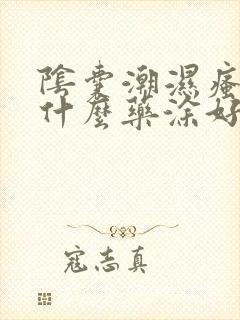 陰囊潮濕瘙
什麼藥涂好
寇志真